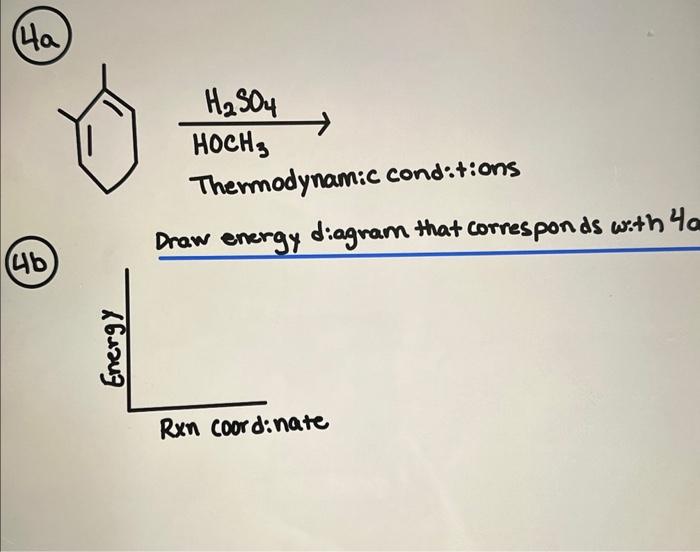 4a
H₂SO₄
HOCH₃
Thermodynamic conditions
Draw energy diagram that corresponds with 4a
4b
Energy
Rxn coordinate